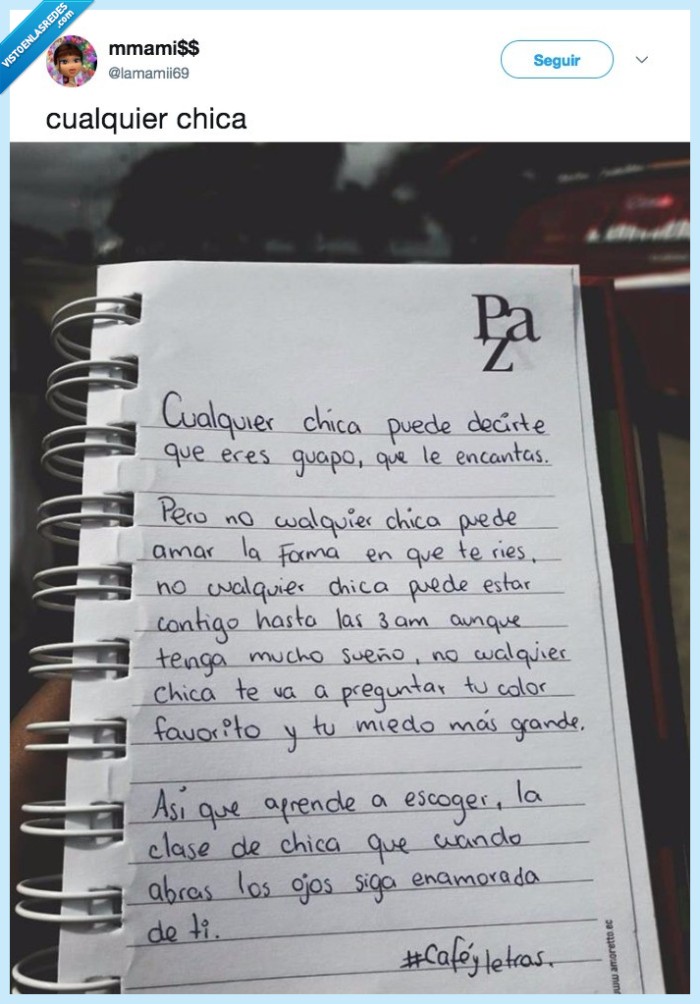 VISTOENLASREDES
.com
mmami$$
@lamamii69
Seguir
cualquier chica
Pa
Z
Cualquier chica puede decirte
que eres guapo, que le encantas.
Pero no cualquier chica puede
amar la forma en que te ries,
no cualquier chica puede estar
contigo hasta las 3 am aunque
tenga mucho sueño, no cualquier
chica te va a preguntar tu color
favorito y tu miedo más grande.
Asi que aprende a escoger, la
clase de chica que cuando
abras los ojos siga enamorada
de ti.
#Caféyletras.
www.amoretto.ec